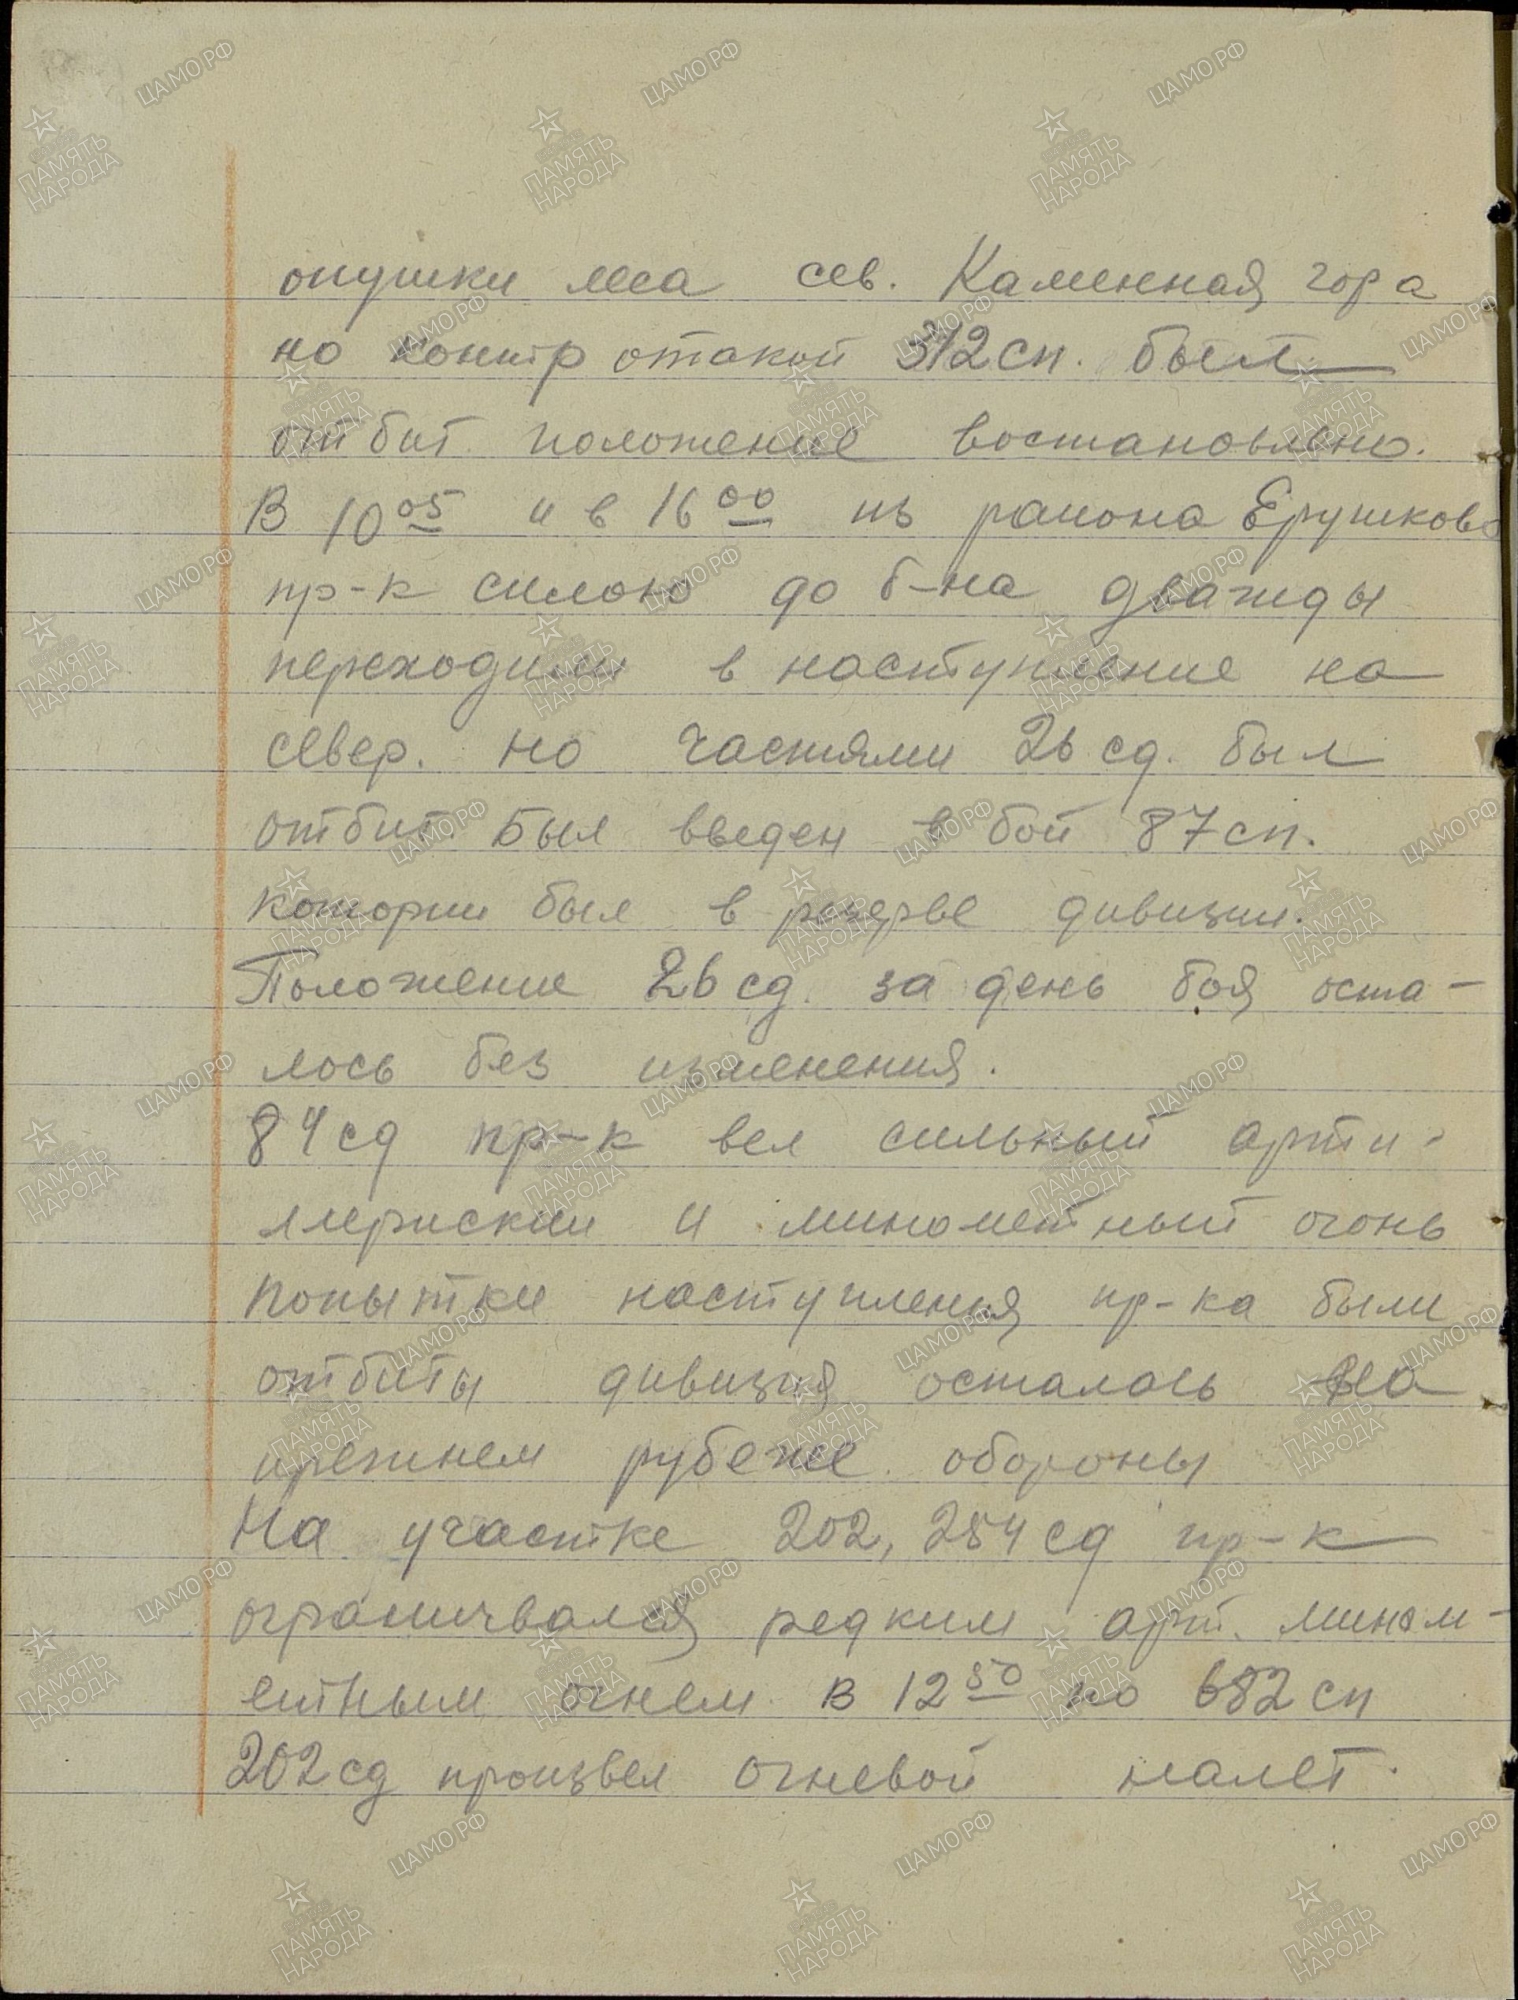 опушки леса сев. Каменная гора
но контр отакой 312 сп. был
отбит положение востановлено.
В 10 05 и в 16 00 из раиона Ерушково
пр-к силою до б-на дважды
переходили в наступление на
север. но частями 26 сд. был
отбит. Был введен в бой 87 сп.
котории был в резерве дивизии.
Положение 26 сд. за день боя оста-
лось без изменения.
84 сд пр-к вел сильный арти-
ллерискии и минометный огонь
попытки наступления пр-ка были
отбиты дивизия осталась на
прежнем рубеже обороны
На участке 202, 254 сд пр-к
ограничвался редким арт. мином-
етным огнем. В 12 50 по 682 сп
202 сд произвел огневой налет.